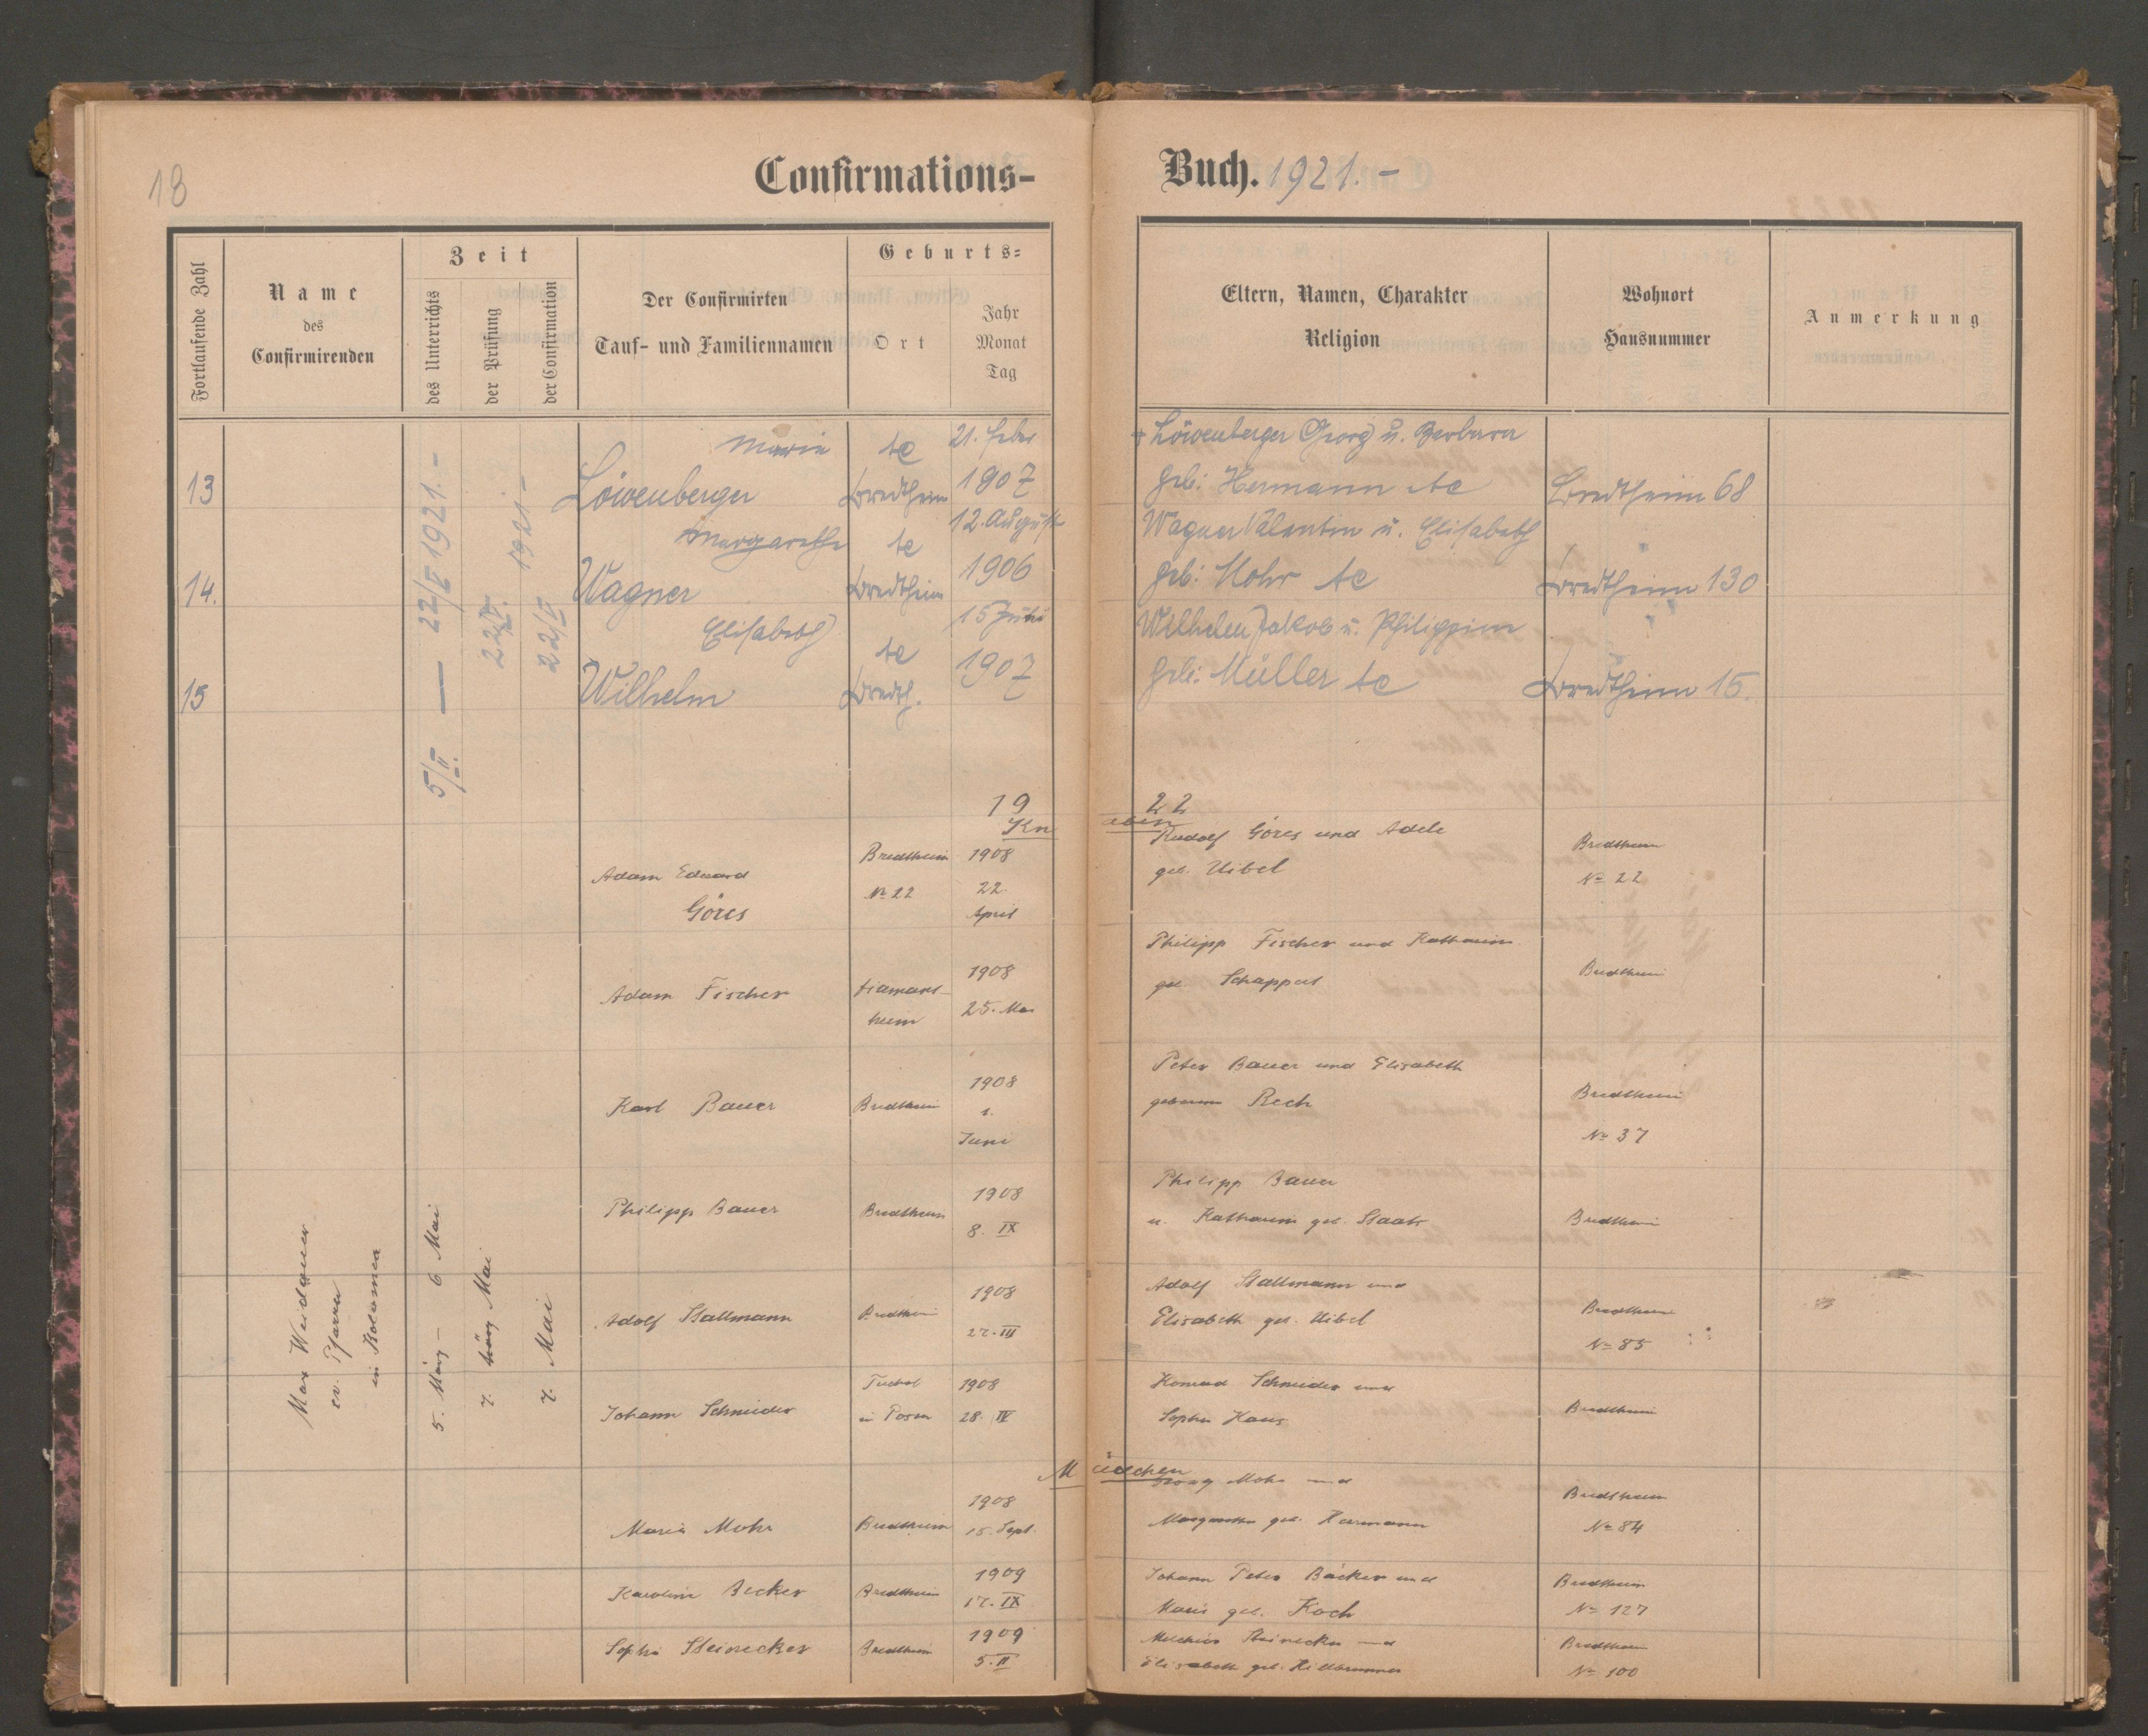 18
Confirmations-
Buch. 1921.-
Fortlaufende Zahl
Name
des
Confirmirenden
Zeit
des Unterrichts
der Prüfung
der Confirmation
Der Confirmirten
Tauf- und Familiennamen
Geburts-
Ort
Jahr
Monat
Tag
Eltern, Namen, Charakter
Religion
Wohnort
Hausnummer
Anmerkung
5/II. — 22/V 1921.-
22/V.
22/V 1921-
Maria 21. Febr
+ Löwenberger Georg u. Barbara
13 Löwenberger Bredtheim 1907
geb: Hermann Bredtheim 68
Margarethe 12. August
Wagner Valentin u. Elisabeth
14. Wagner Bredtheim 1906
geb: Mohr Bredtheim 130
Elisabeth 15
Wilhelm Jakob u. Philippine
15 Wilhelm Bredth. 1907
geb: Müller Bredtheim 15.
1922
Knaben
Max Weidauer
ev. Pfarrer
in Kolomea
5. März - 6 Mai
7. März Mai
7. Mai
Adam Eduard
Göres
Bredtheim
No 22
1908
22.
April
Rudolf Göres und Adele
geb. Uibel
Bredtheim
No 22
Adam Fischer
heim
1908
25. Mai
Philipp Fischer und Katharina
geb. Schappert
Bredtheim
Karl Bauer
Bredtheim
1908
1.
Juni
Peter Bauer und Elisabeth
geborene Rech
Bredtheim
No 37
Philipp Bauer
Bredtheim
1908
8. IX
Philipp Bauer
u. Katharina geb. Staak
Bredtheim
Adolf Stallmann
Bredtheim
1908
27. III
Adolf Stallmann und
Elisabeth geb. Uibel
Bredtheim
No 85
Johann Schneider
Tuchol
in Posen
1908
28. IV
Konrad Schneider und
Sophie Haus
Bredtheim
Mädchen
Maria Mohr
Bredtheim
1908
15. Sept.
Georg Mohr und
Margaretha geb. Hermann
Bredtheim
No 84
Karoline Becker
Bredtheim
1909
17. IX
Johann Peter Bäcker und
Maria geb. Koch
Bredtheim
No 127
Sophie Steinecker
Bredtheim
1909
5. II
Melchior Steinecker und
Elisabeth geb. Hillbrunner
Bredtheim
No 100